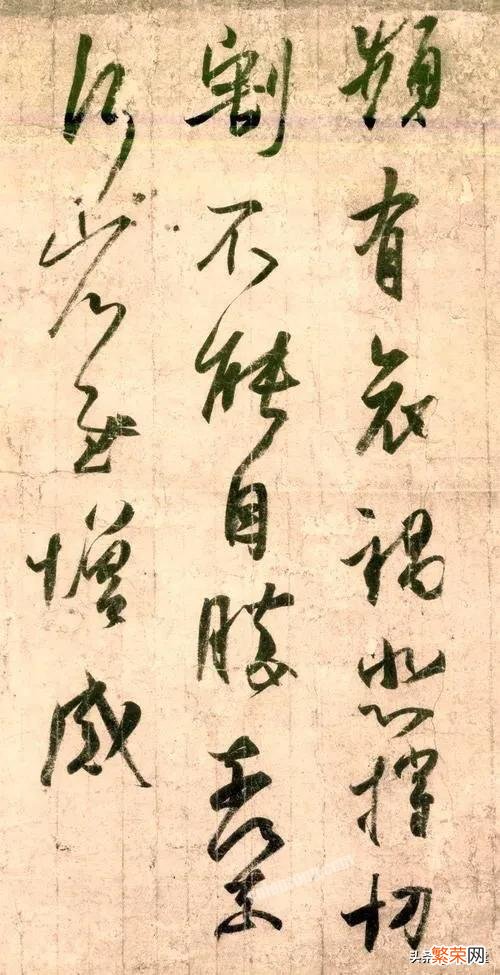 頻有哀禍悲摧切
割不能自勝奈何奈
何省慰增感
繁荣网